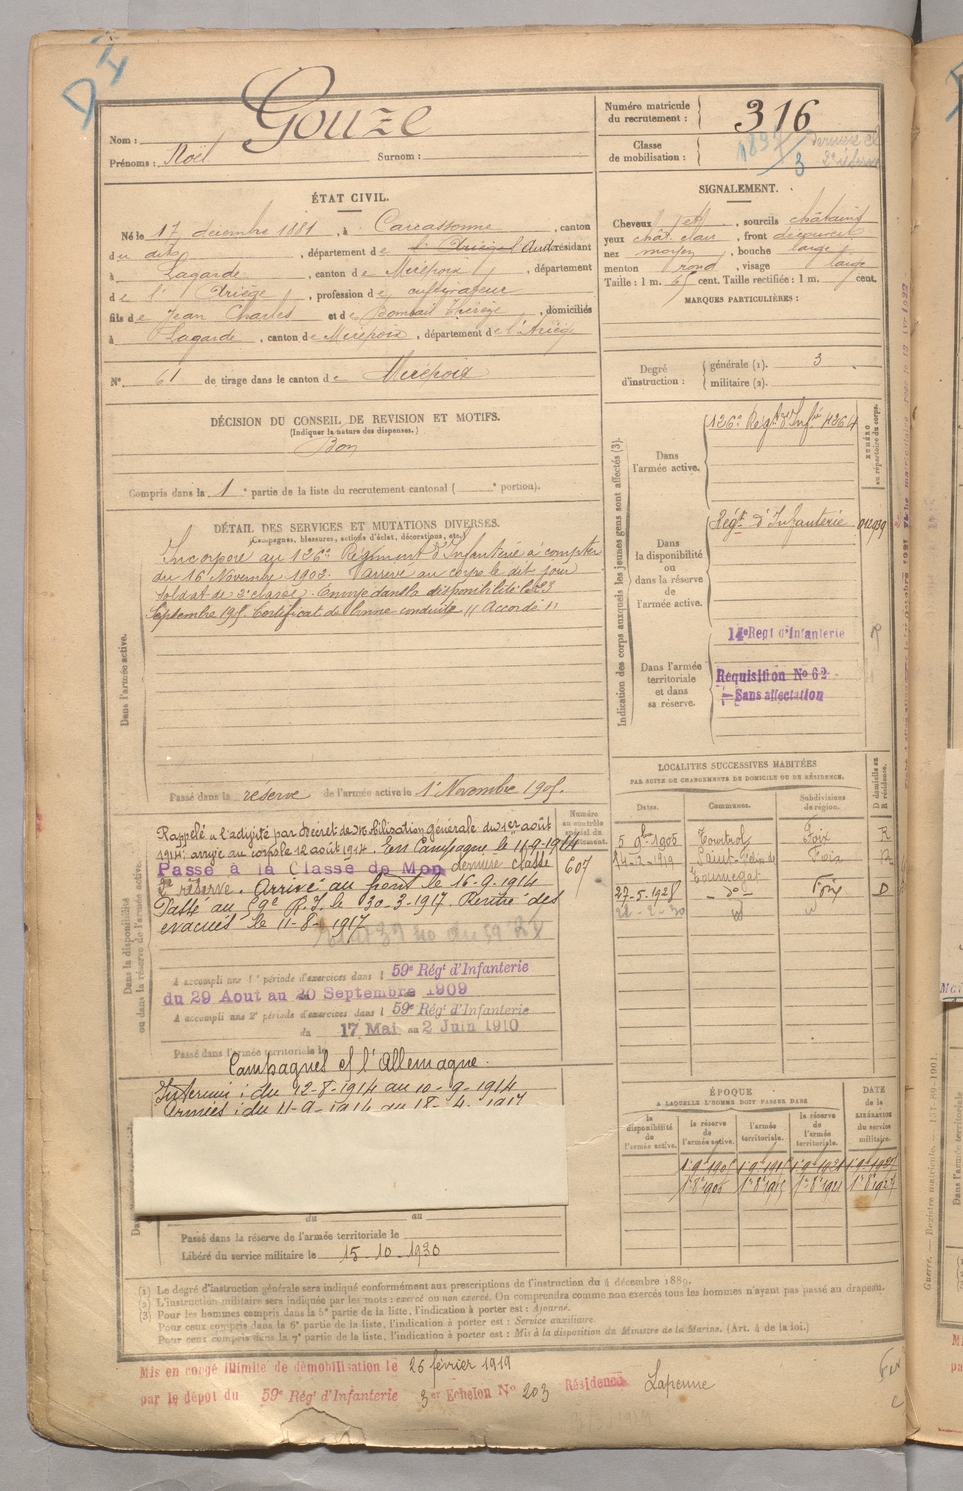 D4
Nom : Gouze
Prénoms : Noël Surnom :
Numéro matricule du recrutement : 316
Classe de mobilisation : 1897/3
ÉTAT CIVIL.
Né le 17 décembre 1881, à Carcassonne, canton
du dit, département de l'Ariège Aude résidant
à Lagarde, canton de Mirepoix, département
de l'Ariège, profession de cultivateur
fils de Jean Charles et de Thérèse, domiciliés
à Lagarde, canton de Mirepoix, département de l'Ariège
N° 61 de tirage dans le canton de Mirepoix
SIGNALEMENT.
Cheveux, sourcils châtains
yeux chât. clair, front découvert
nez moyen, bouche large
menton rond, visage large
Taille : 1 m. 65 cent. Taille rectifiée : 1 m. cent.
MARQUES PARTICULIÈRES :
Degré d'instruction : générale (1). 3
militaire (2).
DÉCISION DU CONSEIL DE REVISION ET MOTIFS.
(Indiquer la nature des dispenses.)
Bon
Compris dans la 1e partie de la liste du recrutement cantonal ( e portion).
DÉTAIL DES SERVICES ET MUTATIONS DIVERSES.
(Campagnes, blessures, actions d'éclat, décorations, etc.)
Dans l'armée active.
Incorporé au 126e Régiment d'Infanterie à compter
du 16 Novembre 1902. Arrivé au corps le dit jour
soldat de 2e classe. Envoyé dans la disponibilité le 23
Septembre 1905. Certificat de bonne conduite "Accordé"
Passé dans la réserve de l'armée active le 1er Novembre 1905.
Indication des corps auxquels les jeunes gens sont affectés (3).
NUMÉRO au répertoire du corps.
Dans l'armée active.
126e Régt d'Infie 4264
Dans la disponibilité ou dans la réserve de l'armée active.
Régt d'Infanterie
Dans l'armée territoriale et dans sa réserve.
14e Regt d'Infanterie
Requisition No 62
Sans affectation
Dans la disponibilité ou dans la réserve de l'armée active.
Numéro au contrôle spécial du recrutement.
607
Rappelé à l'activité par décret de Mobilisation générale du 1er août
1914, arrivé au corps le 12 août 1914. En Campagne le 11-9-1914
Passé à la Classe de Mon dernière classe
2e réserve. Arrivé au front le 16-9-1914
Passé au 59e R.I. le 30-3-1917. Rentré des
évacués le 11-8-1917
A accompli une 1e période d'exercices dans l 59e Régt d'Infanterie
du 29 Aout au 20 Septembre 1909
A accompli une 2e période d'exercices dans l 59e Régt d'Infanterie
du 17 Mai au 2 Juin 1910
Passé dans l'armée territoriale le
Campagnes c/ l'Allemagne.
Intérieur : du 12-8-1914 au 10-9-1914
Armées : du 11-9-1914 au 18-4-1917
du au
Passé dans la réserve de l'armée territoriale le
Libéré du service militaire le 15-10-1930
LOCALITÉS SUCCESSIVES HABITÉES
PAR SUITE DE CHANGEMENTS DE DOMICILE OU DE RÉSIDENCE.
Dates. Communes. Subdivisions de région. D domicile ou R résidence.
5 9bre 1905 Foix R
14-2-1919 Foix R
Tourtrol
27-5-1928 do Foix D
ÉPOQUE
A LAQUELLE L'HOMME DOIT PASSER DANS
la disponibilité de l'armée active.
la réserve de l'armée active.
l'armée territoriale.
la réserve de l'armée territoriale.
DATE de la LIBÉRATION du service militaire.
(1) Le degré d'instruction générale sera indiqué conformément aux prescriptions de l'instruction du 4 décembre 1889.
(2) L'instruction militaire sera indiquée par les mots : exercé ou non exercé. On comprendra comme non exercés tous les hommes n'ayant pas passé au drapeau.
(3) Pour les hommes compris dans la 5e partie de la liste, l'indication à porter est : Ajourné.
Pour ceux compris dans la 6e partie de la liste, l'indication à porter est : Service auxiliaire.
Pour ceux compris dans la 7e partie de la liste, l'indication à porter est : Mis à la disposition du Ministre de la Marine. (Art. 4 de la loi.)
Mis en congé illimité de démobilisation le 26 février 1919
par le dépôt du 59e Régt d'Infanterie 3er Echelon No 203 Résidence Lapenne
Guerre. — Registre matricule. — 151-89-1901.